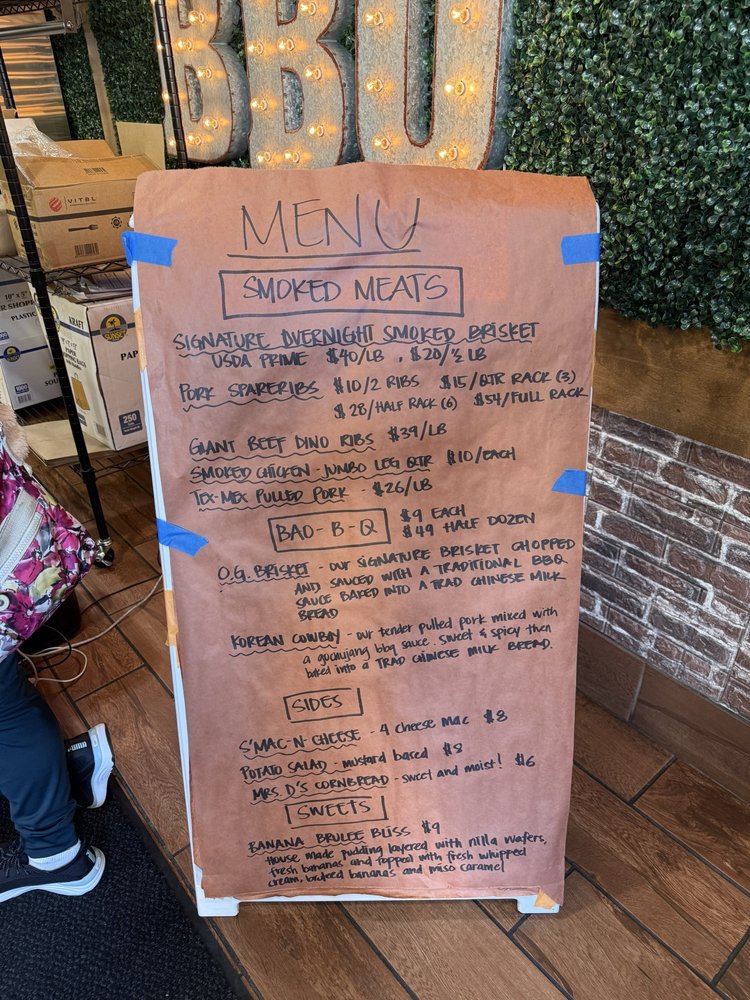 BBQ
MENU
SMOKED MEATS
SIGNATURE OVERNIGHT SMOKED BRISKET
USDA PRIME $40/LB, $20/½ LB
PORK SPARERIBS $10/2 RIBS $15/QTR RACK (3)
$28/HALF RACK (6) $54/FULL RACK
GIANT BEEF DINO RIBS $39/LB
SMOKED CHICKEN - JUMBO LEG QTR $10/EACH
TEX-MEX PULLED PORK - $26/LB
BAO-B-Q $9 EACH
$49 HALF DOZEN
O.G. BRISKET - OUR SIGNATURE BRISKET CHOPPED
AND SAUCED WITH A TRADITIONAL BBQ
SAUCE BAKED INTO A TRAD CHINESE MILK
BREAD
KOREAN COWBOY - our tender pulled pork mixed with
a gochujang bbq sauce. sweet & spicy then
baked into a TRAD CHINESE MILK BREAD.
SIDES
S'MAC-N-CHEESE - 4 cheese mac $8
POTATO SALAD - mustard based $8
MRS. D'S CORNBREAD - sweet and moist! $6
SWEETS
BANANA BRULEE BLISS $9
House made pudding layered with nilla wafers,
fresh bananas and topped with fresh whipped
cream, bruleed bananas and miso caramel
VITAL
KRAFT
250
PUMA